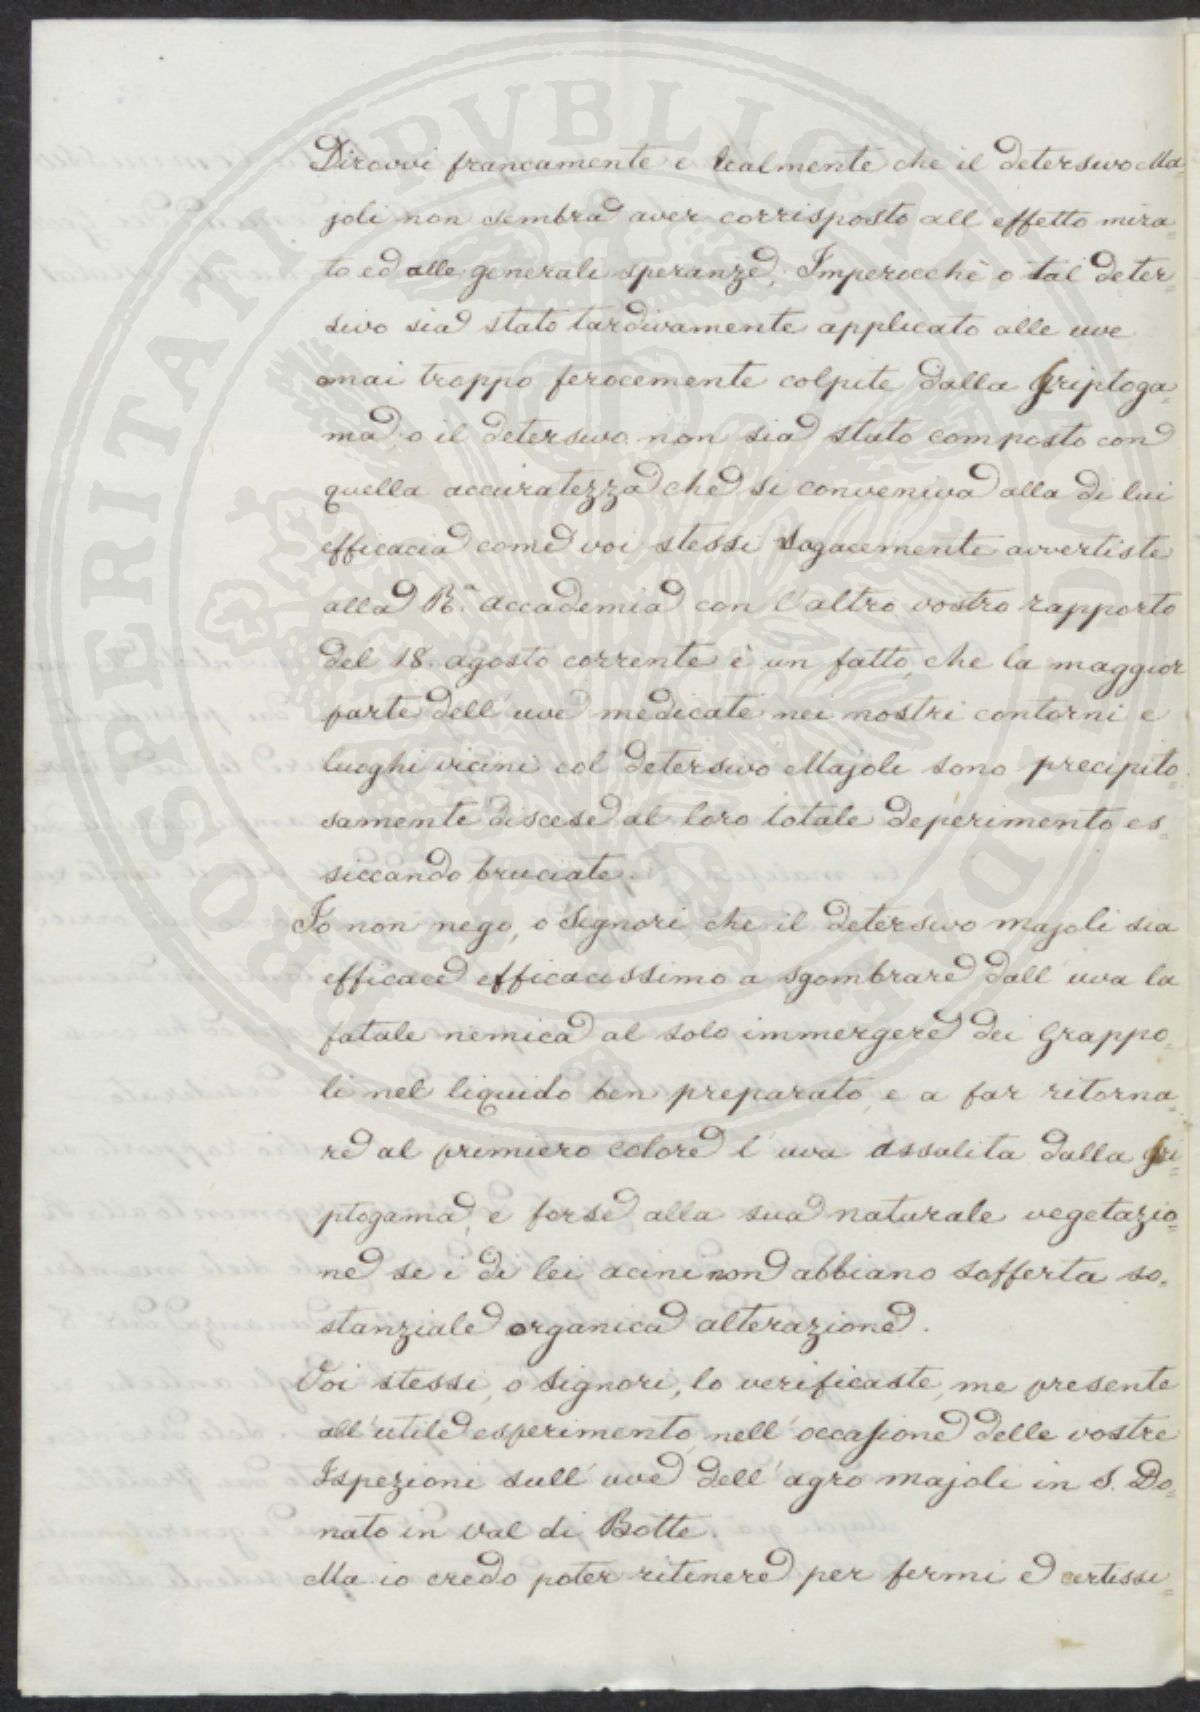 Dirovvi francamente e lealmente che il detersivo Ma=
joli non sembra aver corrisposto all'effetto mira=
to ed alle generali speranze. Imperocchè o tal deter=
sivo sia stato tardivamente applicato alle uve
omai troppo ferocemente colpite dalla Criptoga=
ma, o il detersivo non sia stato composto con
quella accuratezza che si conveniva alla di lui
efficacia come voi stessi sagacemente avvertiste
alla R.a Accademia con l'altro vostro rapporto
del 18. agosto corrente è un fatto, che la maggior
parte dell'uve medicate nei nostri contorni e
luoghi vicini col detersivo Majoli sono precipito=
samente discese al loro totale deperimento es=
siccando bruciate.
Io non nego, o Signori che il detersivo majoli sia
efficace efficacissimo a sgombrare dall'uva la
fatale nemica al solo immergere dei Grappo=
li nel liquido ben preparato, e a far ritorna=
re al primiero colore l'uva assalita dalla Cri=
ptogama, e forse alla sua naturale vegetazio=
ne se i di lei acini non abbiano sofferta so=
stanziale organica alterazione.
Voi stessi, o Signori, lo verificaste, me presente
all'utile esperimento, nell'occasione delle vostre
Ispezioni sull'uve dell'agro majoli in S. Do=
nato in val di Botte.
Ma io credo poter ritenere per fermi e certissi=
PROSPERITATI PUBLICAE AUGENDAE